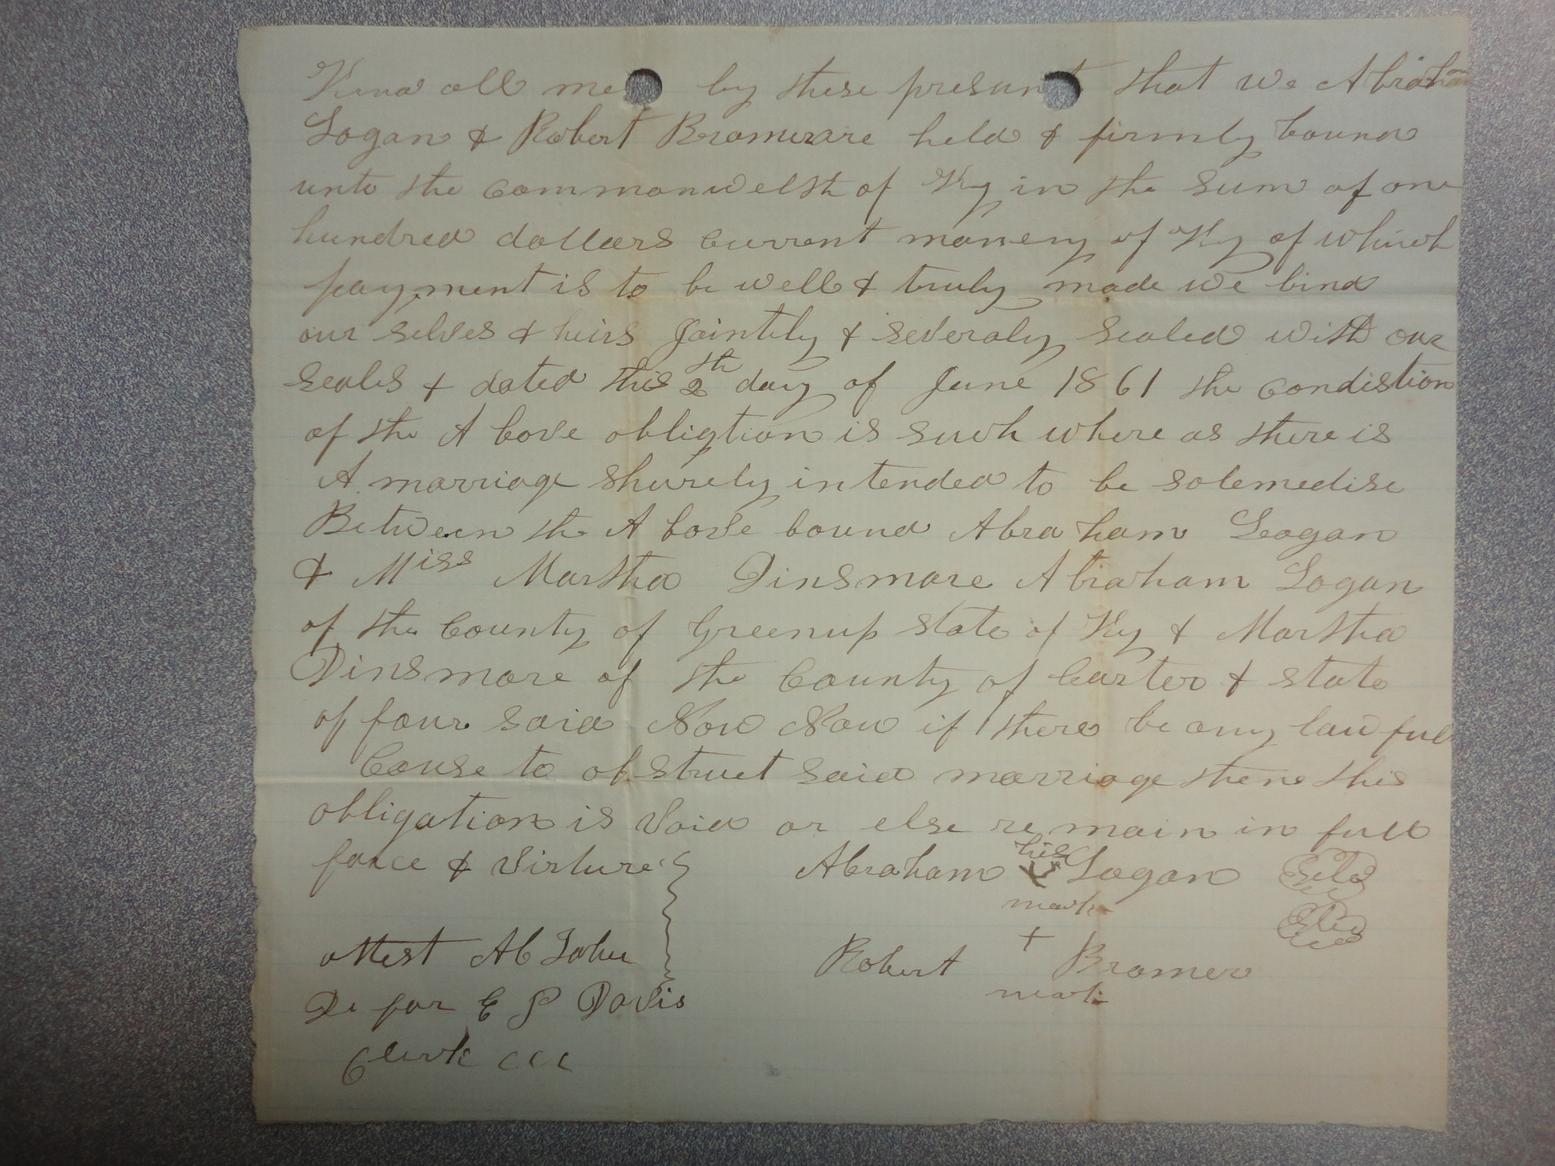 Know all me by these presun that we Abraham
Logan & Robert Bromer are held & firmly bound
unto the commonwelth of Ky in the sum of one
hundred dollars current monery of Ky of which
payment is to be well & truly made we bind
our selves & heirs Jointily & severaly sealed with our
seales & dated this 2th day of June 1861 the condistion
of the A bove obligtion is such where as there is
A marriage shurely intended to be solemedise
Between the A bove bound Abraham Logan
& Miss Martha Dinsmore Abraham Logan
of the County of Greenup state of Ky & Martha
Dinsmore of the County of Carter & state
of four said Now Now if there be any lawful
Cause to obstruct said marriage then this
obligation is void or else remain in full
force & virture
Abraham his Logan
mark
attest Ab
Robert + Bromer
mark
De for E P Davis
Clerk CCC